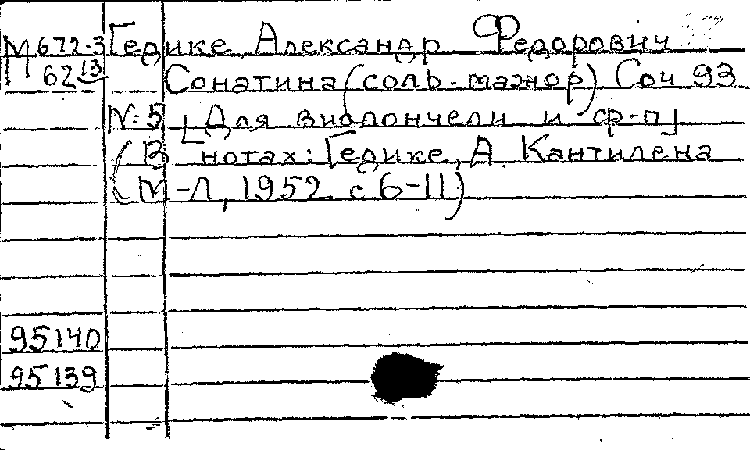 М672-3 Гедике, Александр Федорович
6213 Сонатина (соль-мажор) Соч 93
№5 [Для виолончели и ф-п]
(В нотах: Гедике, А Кантилена
(М-Л, 1952 с 6-11)
95140
95139